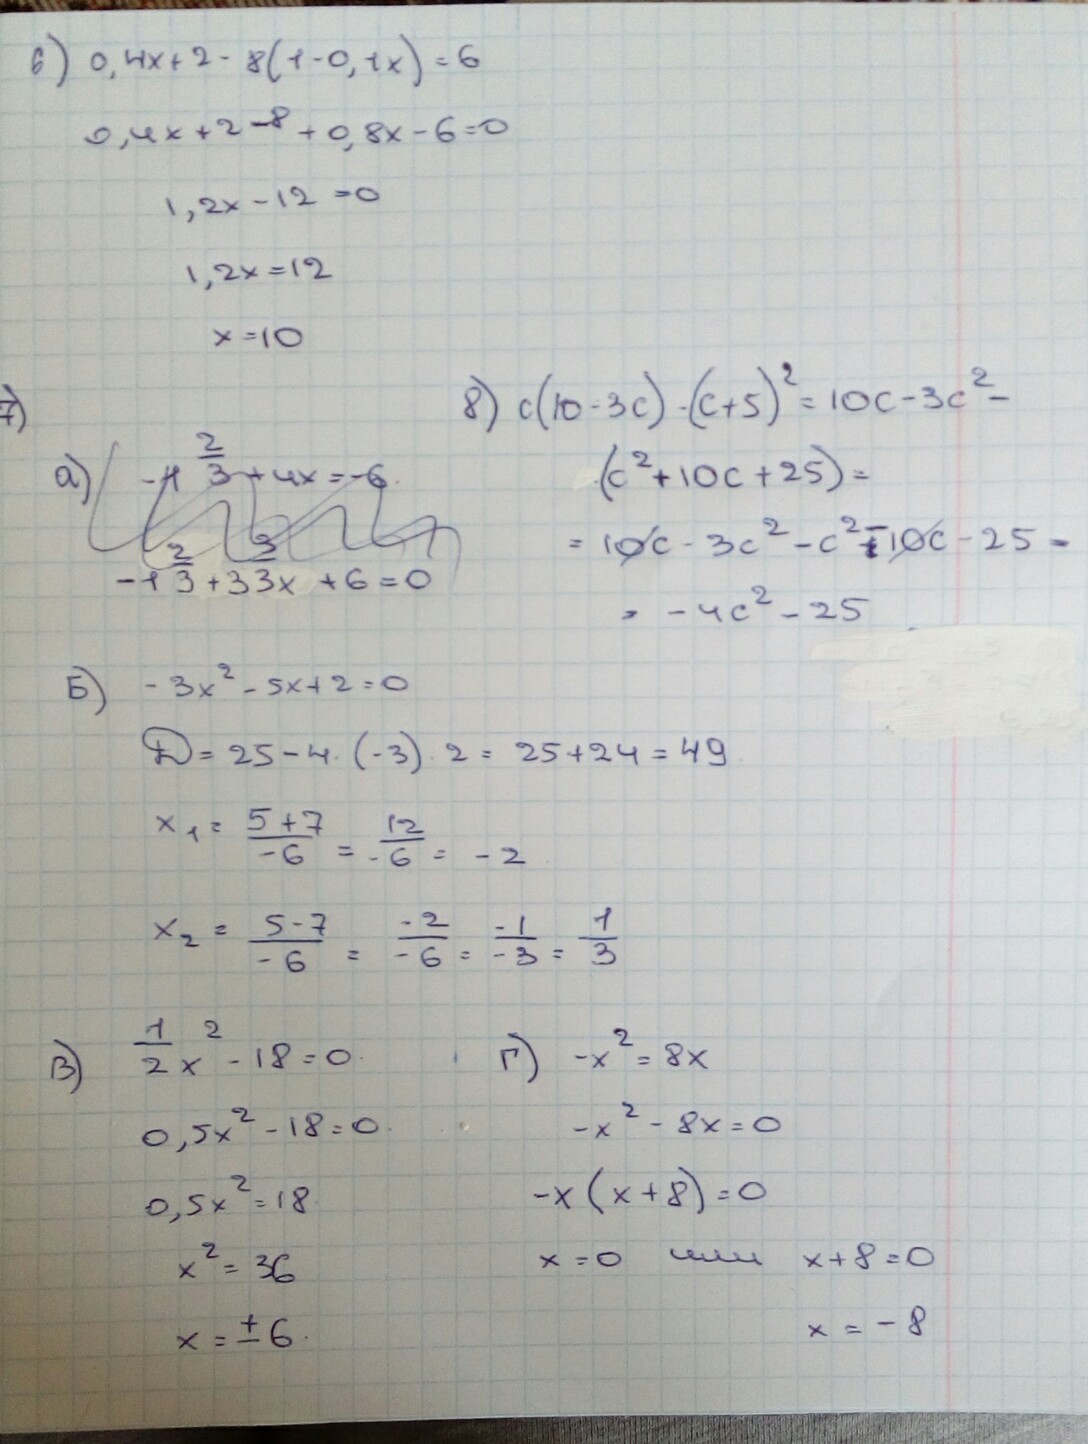 6) 0,4x+2-8(1-0,1x)=6
0,4x+2-8+0,8x-6=0
1,2x-12=0
1,2x=12
x=10
7)
а) -1 2/3+4x=-6
-1 2/3+3 3/3x+6=0
8) c(10-3c)-(c+5)²=10c-3c²-
-(c²+10c+25)=
=10c-3c²-c²-10c-25=
=-4c²-25
Б) -3x²-5x+2=0
D=25-4·(-3)·2=25+24=49
x₁=5+7/-6=12/-6=-2
x₂=5-7/-6=-2/-6=-1/-3=1/3
В) 1/2x²-18=0
0,5x²-18=0
0,5x²=18
x²=36
x=±6
Г) -x²=8x
-x²-8x=0
-x(x+8)=0
x=0 или x+8=0
x=-8